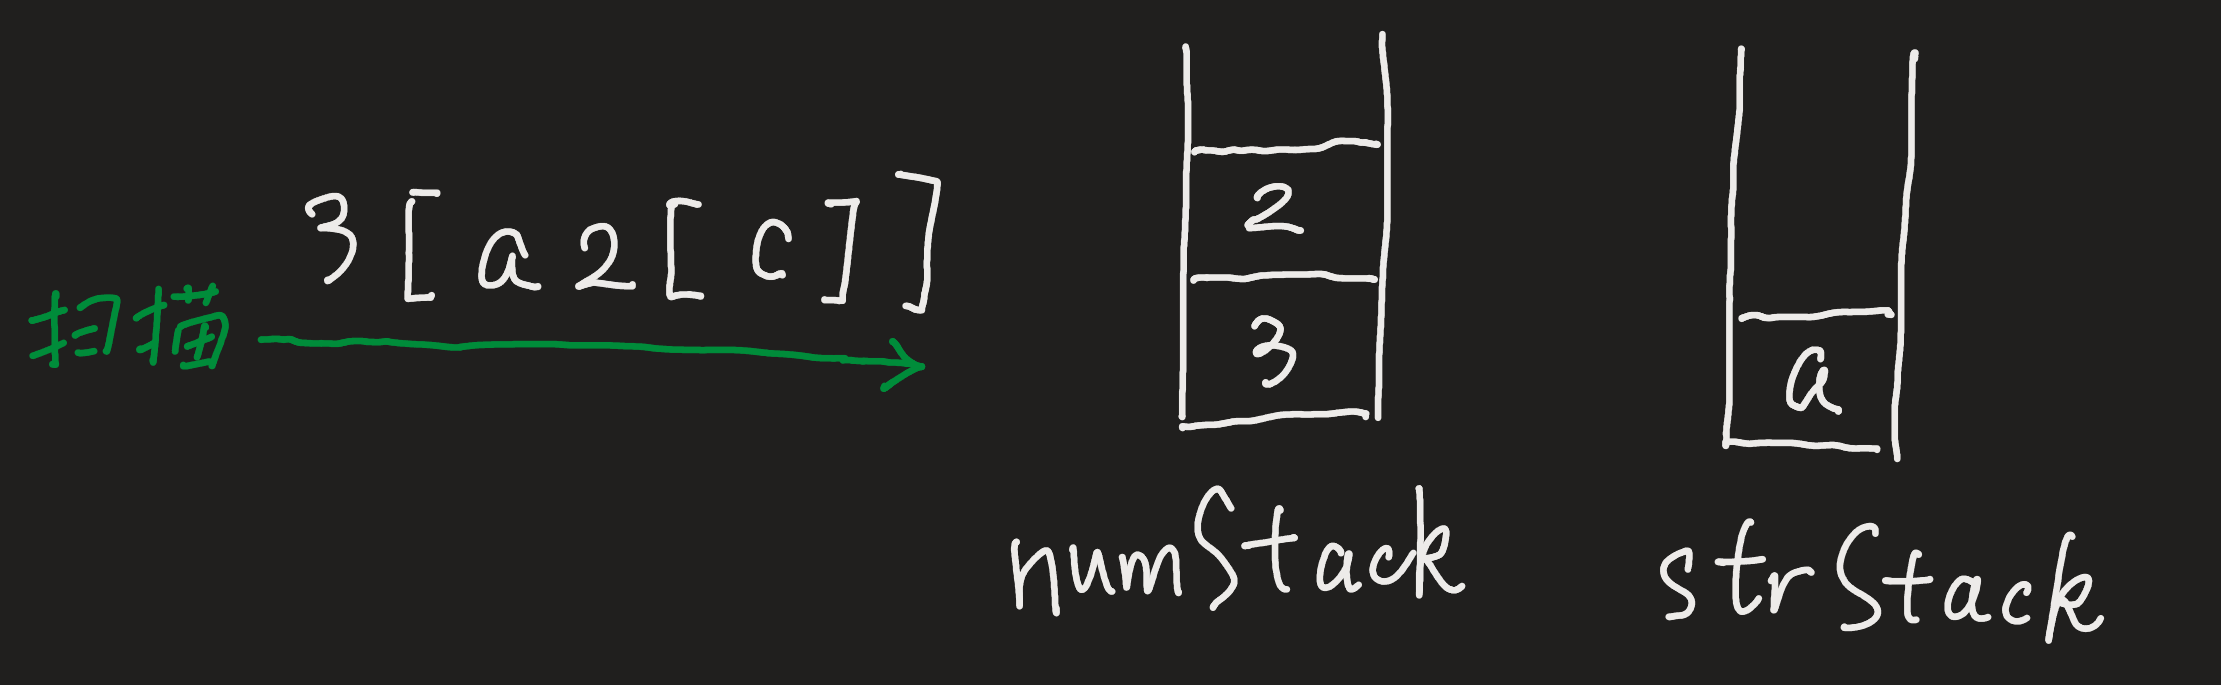 3[a2[c]]
扫描
2
3
a
numStack
strStack